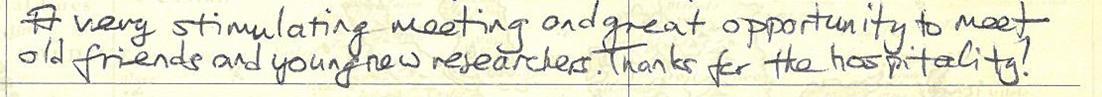 A very stimulating meeting and great opportunity to meet
old friends and young new researchers. Thanks for the hospitality!